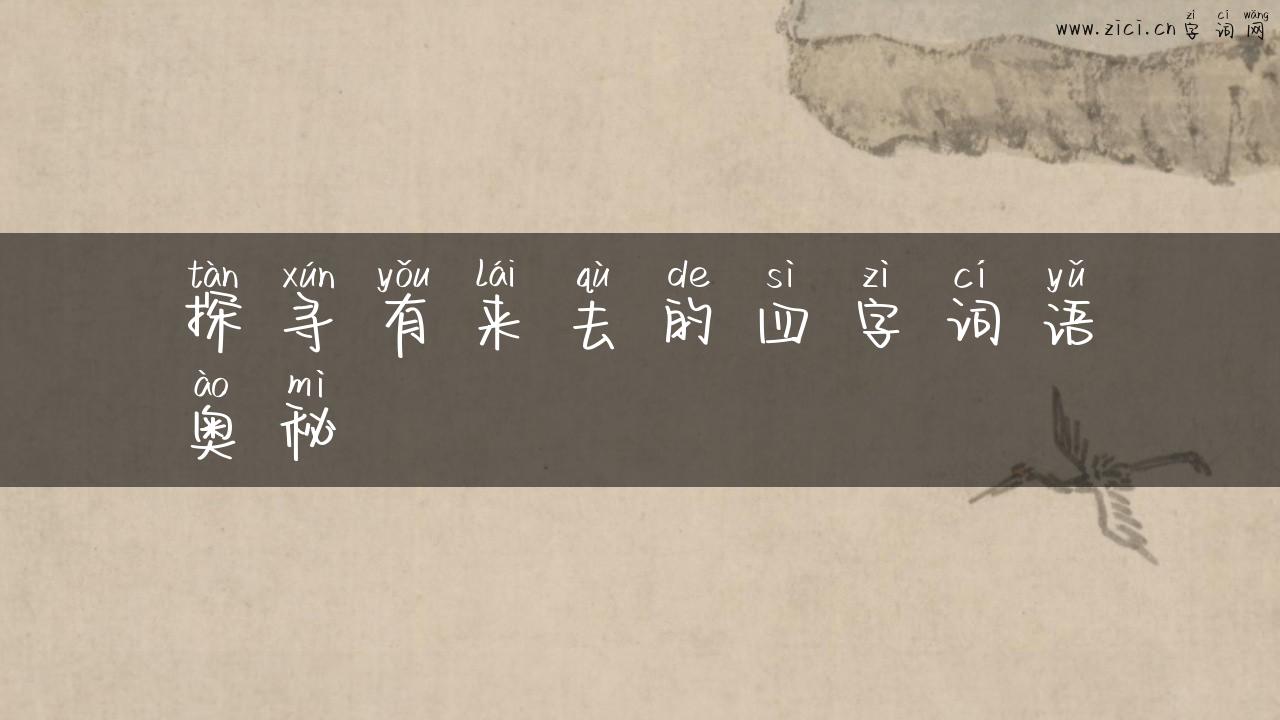 zì cí wǎng
www.zici.cn 字词网
tàn xún yǒu lái qù de sì zì cí yǔ
探寻有来去的四字词语
ào mì
奥秘